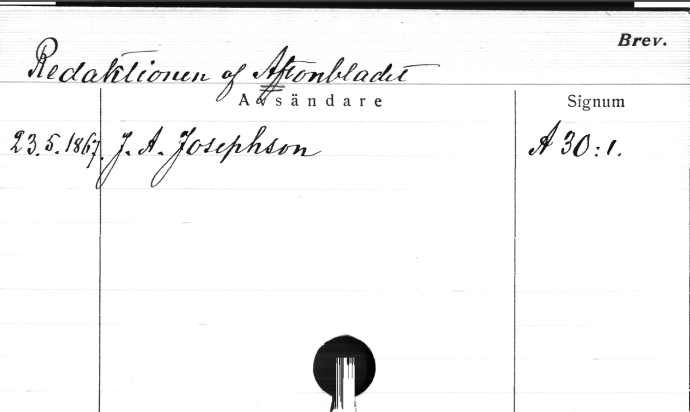 Brev.
Redaktionen af Aftonbladet
Avsändare Signum
23.5.1867. J. A. Josephson A 30:1.